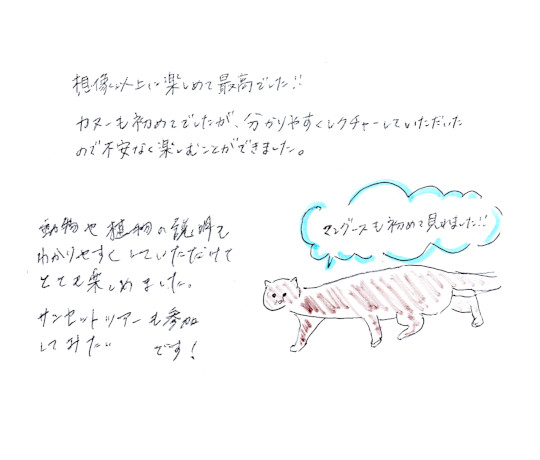 想像以上に楽しめて最高でした!!
カヌーも初めてでしたが、分かりやすくレクチャーしていただいた
ので不安なく楽しむことができました。
マングースも初めて見れました!!
動物や植物の説明を
わかりやすくしていただけて
とても楽しめました。
サンセットツアーも参加
してみたい です!